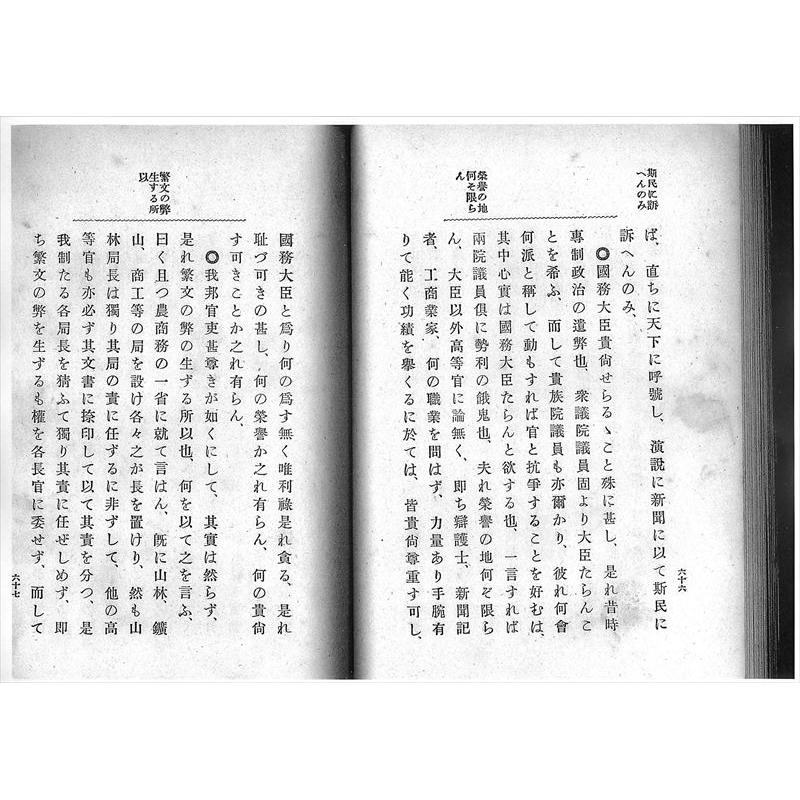 斯民に訴
へんのみ
ば、直ちに天下に呼號し、演説に新聞に以て斯民に
訴へんのみ、
榮譽の地
何そ限ら
ん
◎國務大臣貴尙せらるゝこと殊に甚し、是れ昔時
專制政治の遺弊也、衆議院議員固より大臣たらんこ
とを希ふ、而して貴族院議員も亦爾かり、彼れ何會
何派と稱して動もすれば官と抗爭することを好むは、
其中心實は國務大臣たらんと欲する也、一言すれば
兩院議員俱に勢利の餓鬼也、夫れ榮譽の地何そ限ら
ん、大臣以外高等官に論無く、即ち辯護士、新聞記
者、工商業家、何の職業を問はず、力量あり手腕有
りて能く功績を擧くるに於ては、皆貴尙尊重す可し、
六十六
國務大臣と爲り何の爲す無く唯利祿是れ貪る、是れ
耻づ可きの甚し、何の榮譽か之れ有らん、何の貴尙
す可きことか之れ有らん、
繁文の弊
生する所
以
◎我邦官吏甚尊きが如くにして、其實は然らず、
是れ繁文の弊の生ずる所以也、何を以て之を言ふ、
曰く且つ農商務の一省に就て言はん、旣に山林、鑛
山、商工等の局を設け各々之が長を置けり、然も山
林局長は獨り其局の責に任ずるに非ずして、他の高
等官も亦必ず其文書に捺印して以て其責を分つ、是
我制たる各局長を猜ふて獨り其責に任ぜしめず、即
ち繁文の弊を生ずるも權を各長官に委せず、而して
六十七